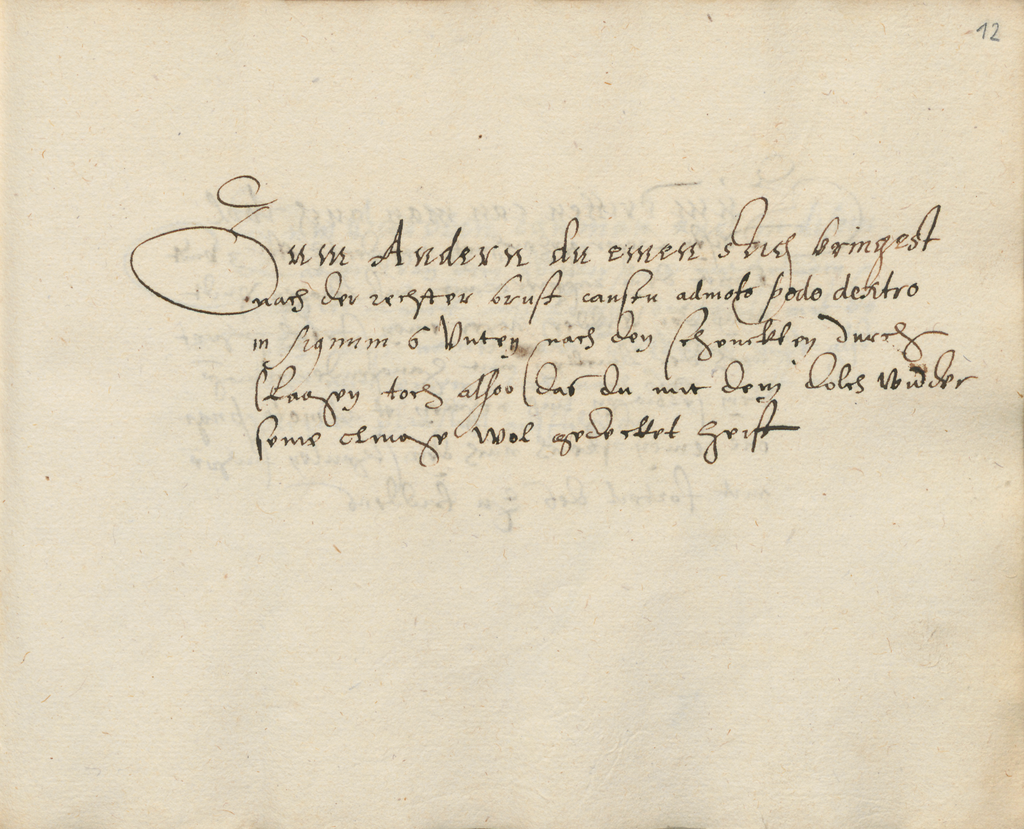 12
Zum Andern du einen stich bringest
nach der rechter brust canstu admoto pede dextro
in signum 6 Vnten nach den schenckken durch
schlagen doch alsoo das du mit dem dolch widder
seine klinge wol gedecket seist